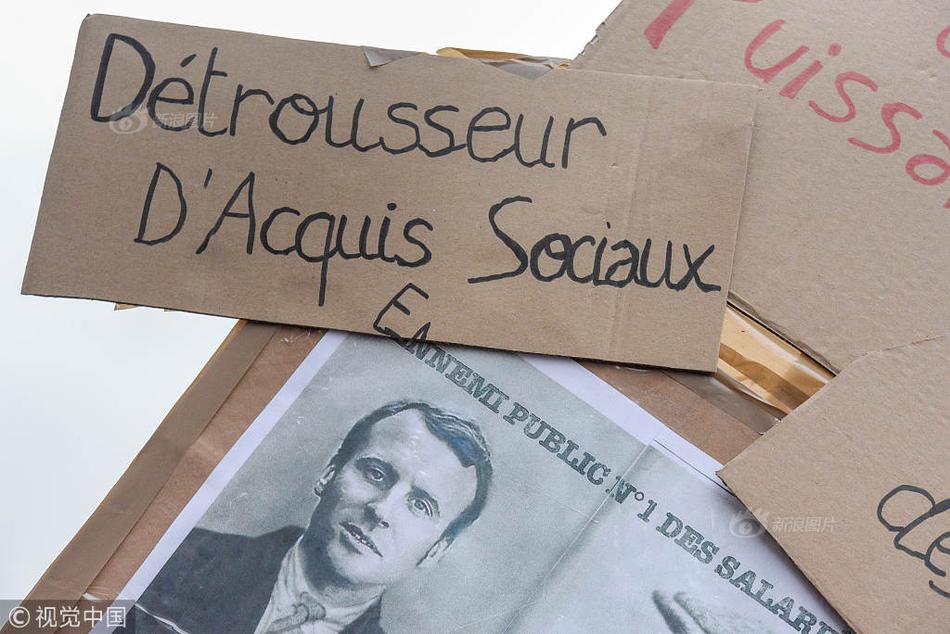 Détrousseur
D'Acquis Sociaux
ENNEMI PUBLIC N°1 DES SALARI
Puissa
de
新浪图片
新浪图片
© 视觉中国